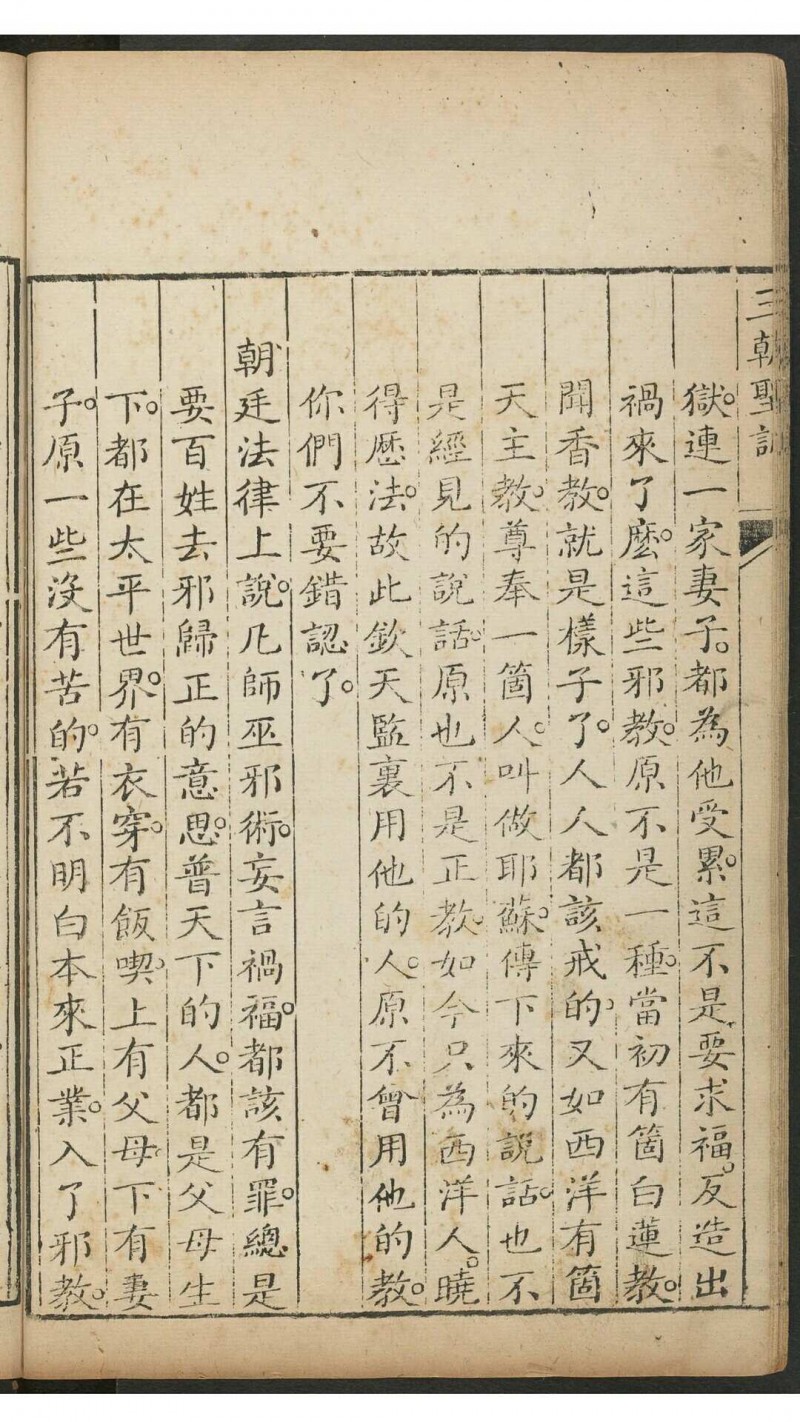 三朝聖訓
獄。連一家妻子。都為他受累。這不是要求福。反造出
禍來了麽。這些邪教。原不是一種。當初有箇白蓮教。
聞香教。就是樣子了。人人都該戒的。又如西洋有箇
天主教。尊奉一箇人。叫做耶蘇。傳下來的說話。也不
是經見的說話。原也不是正教。如今只為西洋人。曉
得厯法。故此欽天監裏用他的人。原不曾用他的教。
你們不要錯認了。
朝廷法律上說。凢師巫邪術。妄言禍福。都該有罪。總是
要百姓去邪歸正的意思。普天下的人。都是父母生
下。都在太平世界。有衣穿。有飯喫。上有父母。下有妻
子。原一些沒有苦的。若不明白本來正業。入了邪教。